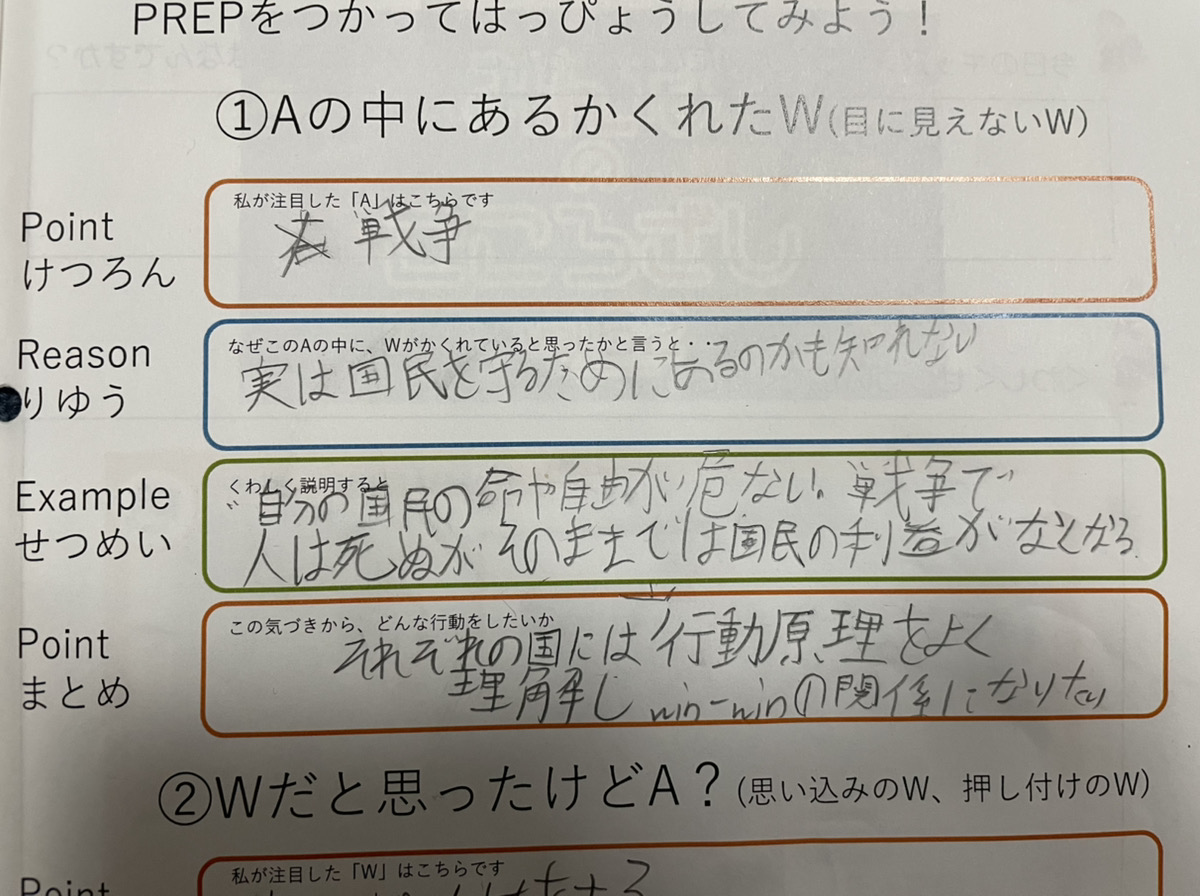 PREPをつかってはっぴょうしてみよう！
①Aの中にあるかくれたW(目に見えないW)
Point
けつろん
私が注目した「A」はこちらです
戦争
Reason
りゆう
なぜこのAの中に、Wがかくれていると思ったかと言うと・・
実は国民を守るためにあるのかも知れない
Example
せつめい
くわしく説明すると
自分の国民の命や自由が危ない。戦争で
人は死ぬがそのままでは国民の利益がなくなる
Point
まとめ
この気づきから、どんな行動をしたいか
それぞれの国には行動原理をよく
理解し win-winの関係になりたい
②Wだと思ったけどA？(思い込みのW、押し付けのW)
Point
私が注目した「W」はこちらです